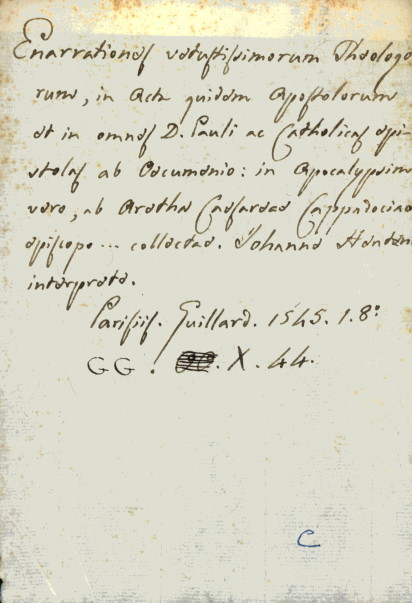 Enarrationes vetustissimorum Theologo
rum, in Acta quidem Apostolorum
et in omnes D. Pauli ac Catholicas epi-
stolas ab Oecumenio: in Apocalypsim
vero, ab Aretha Caesareae Cappadociae
episcopo ... collectae. Johanne Henten
interprete.
Parisiis. Guillard. 1545. 1. 8°
GG. X. 44.
C